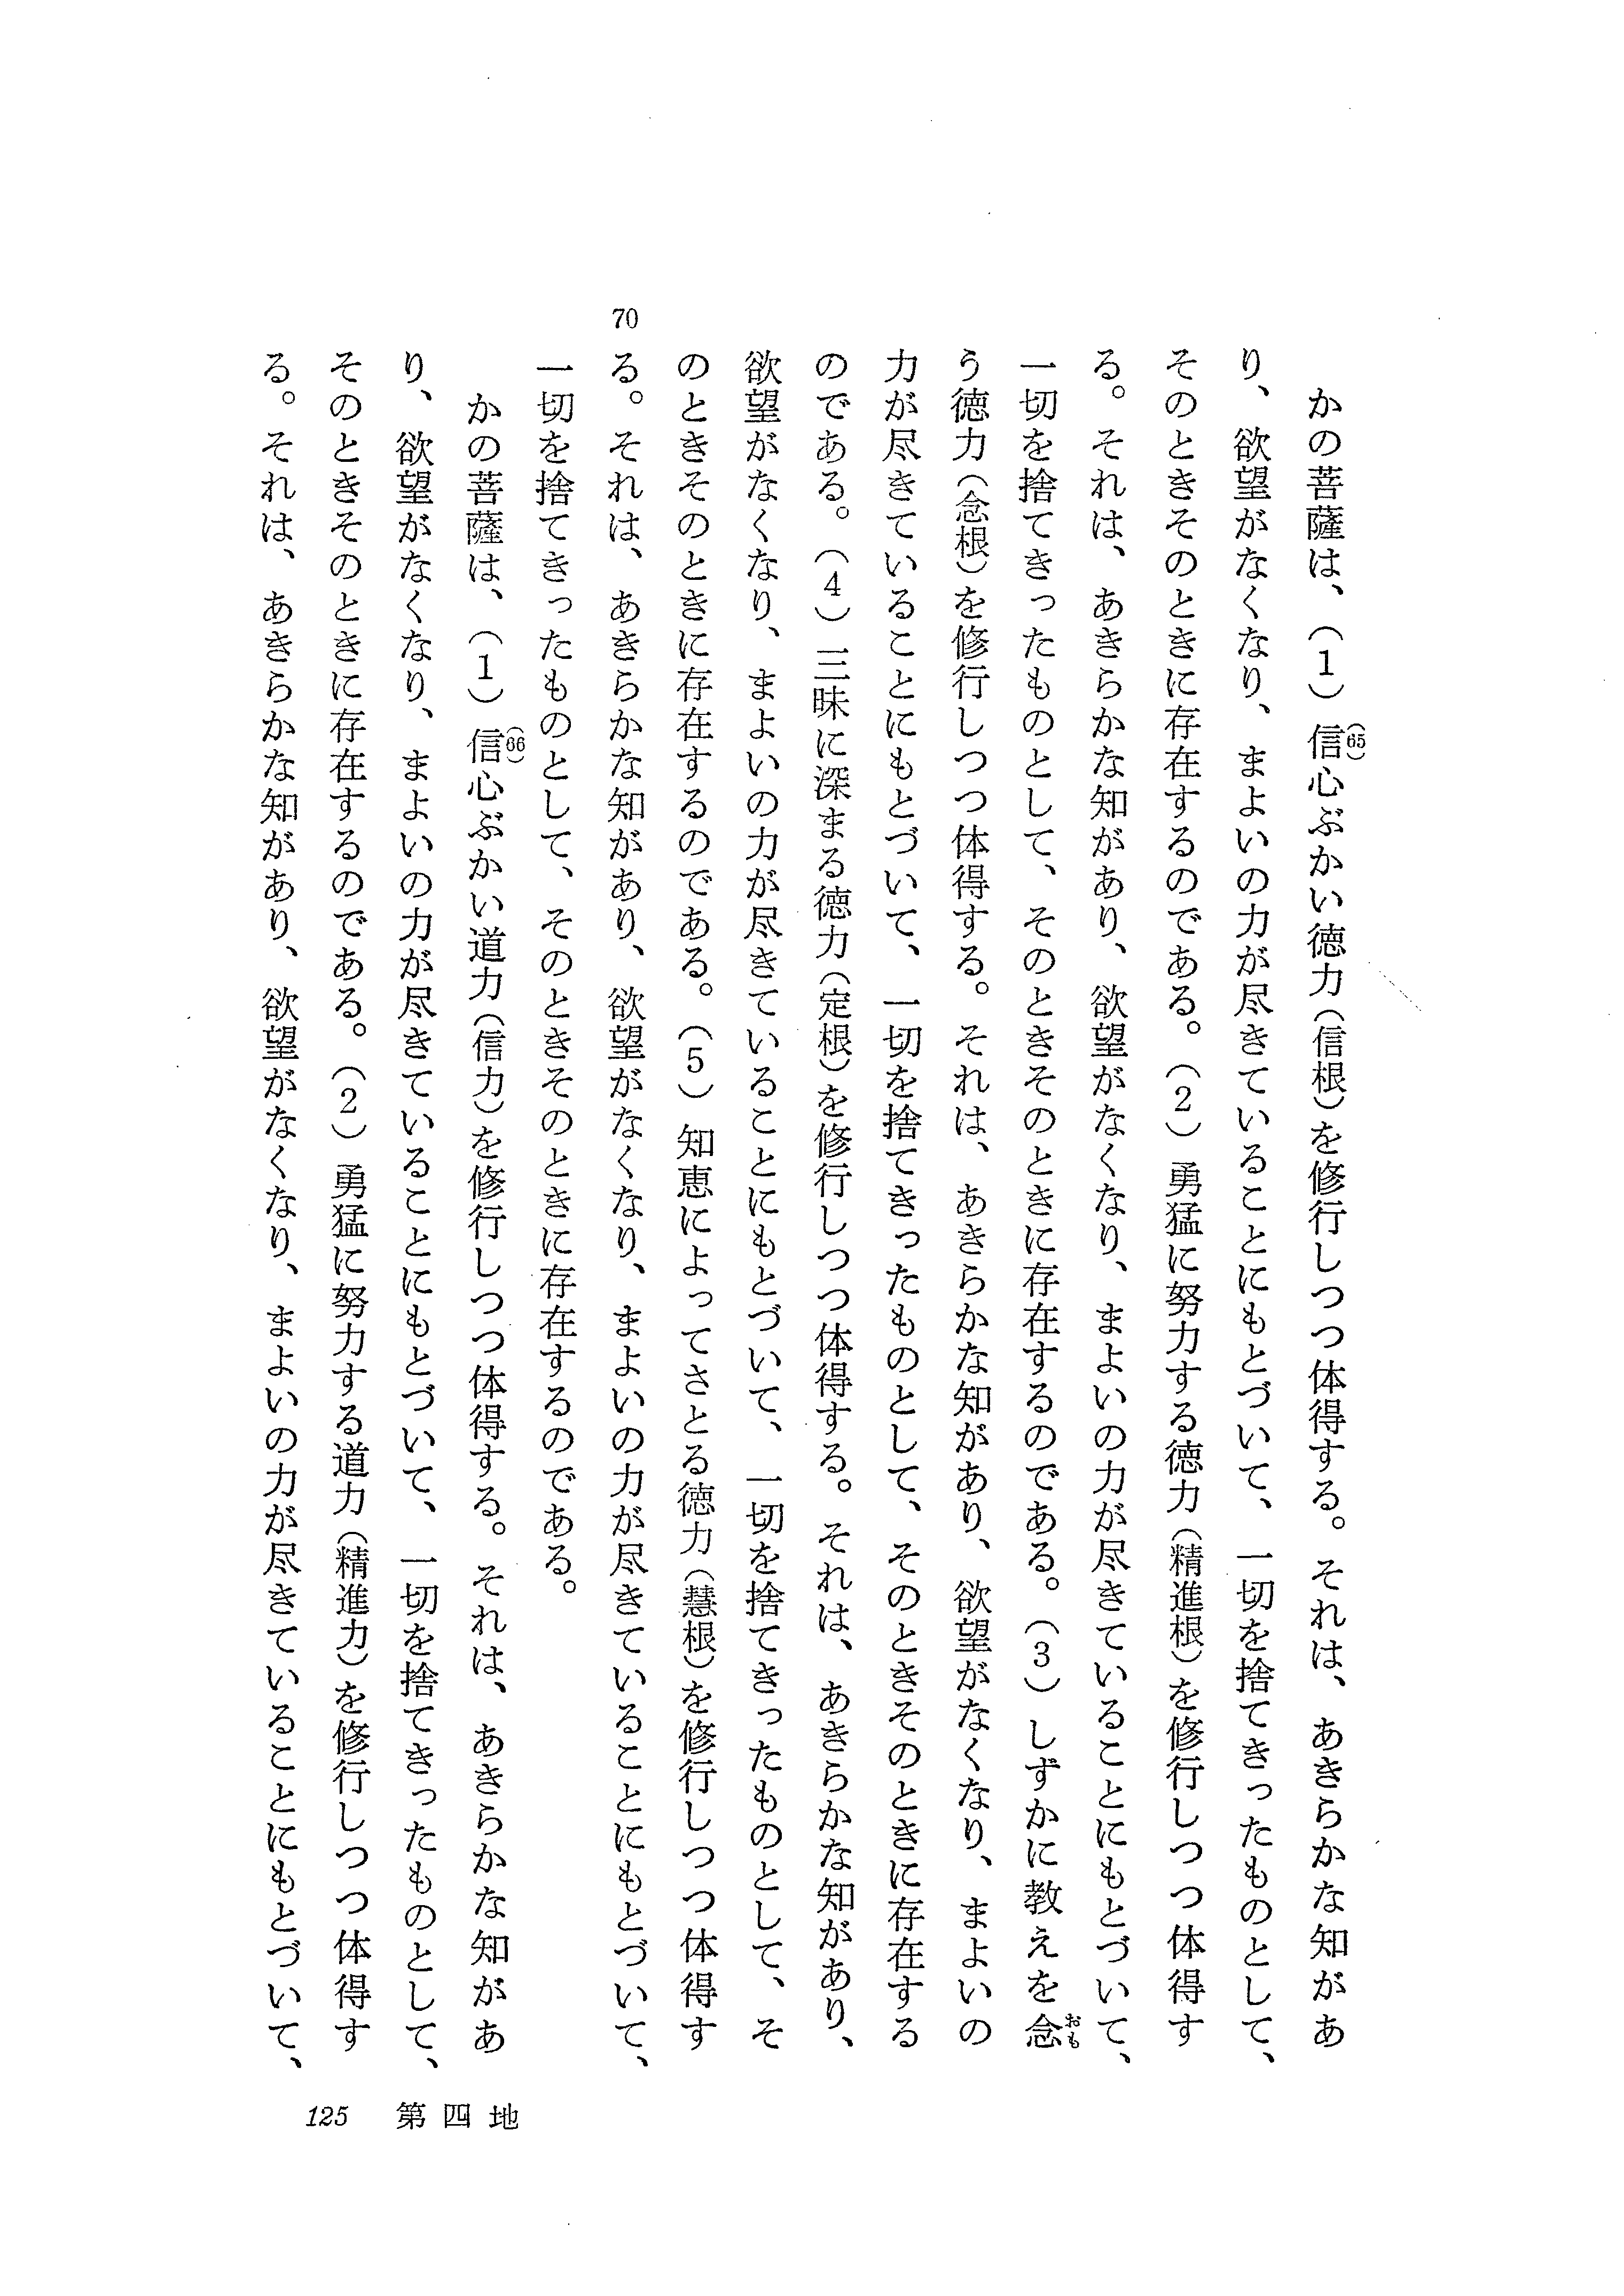 かの菩薩は、（1）信(65)心ぶかい徳力（信根）を修行しつつ体得する。それは、あきらかな知があ
り、欲望がなくなり、まよいの力が尽きていることにもとづいて、一切を捨てきったものとして、
そのときそのときに存在するのである。（2）勇猛に努力する徳力（精進根）を修行しつつ体得す
る。それは、あきらかな知があり、欲望がなくなり、まよいの力が尽きていることにもとづいて、
一切を捨てきったものとして、そのときそのときに存在するのである。（3）しずかに教えを念おも
う徳力（念根）を修行しつつ体得する。それは、あきらかな知があり、欲望がなくなり、まよいの
力が尽きていることにもとづいて、一切を捨てきったものとして、そのときそのときに存在する
のである。（4）三昧に深まる徳力（定根）を修行しつつ体得する。それは、あきらかな知があり、
欲望がなくなり、まよいの力が尽きていることにもとづいて、一切を捨てきったものとして、そ
のときそのときに存在するのである。（5）知恵によってさとる徳力（慧根）を修行しつつ体得す
70
る。それは、あきらかな知があり、欲望がなくなり、まよいの力が尽きていることにもとづいて、
一切を捨てきったものとして、そのときそのときに存在するのである。
かの菩薩は、（1）信(66)心ぶかい道力（信力）を修行しつつ体得する。それは、あきらかな知があ
り、欲望がなくなり、まよいの力が尽きていることにもとづいて、一切を捨てきったものとして、
そのときそのときに存在するのである。（2）勇猛に努力する道力（精進力）を修行しつつ体得す
る。それは、あきらかな知があり、欲望がなくなり、まよいの力が尽きていることにもとづいて、
125 第四地